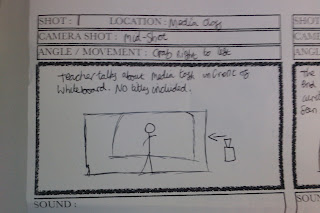 SHOT : 1 LOCATION: Media Clas
CAMERA SHOT : Mid-Shot
ANGLE / MOVEMENT : right to left
Teacher talks about Media task infront of
Whiteboard. No titles included.
SOUND :
SHOT
CAME
ANGL
The
find
SOUN